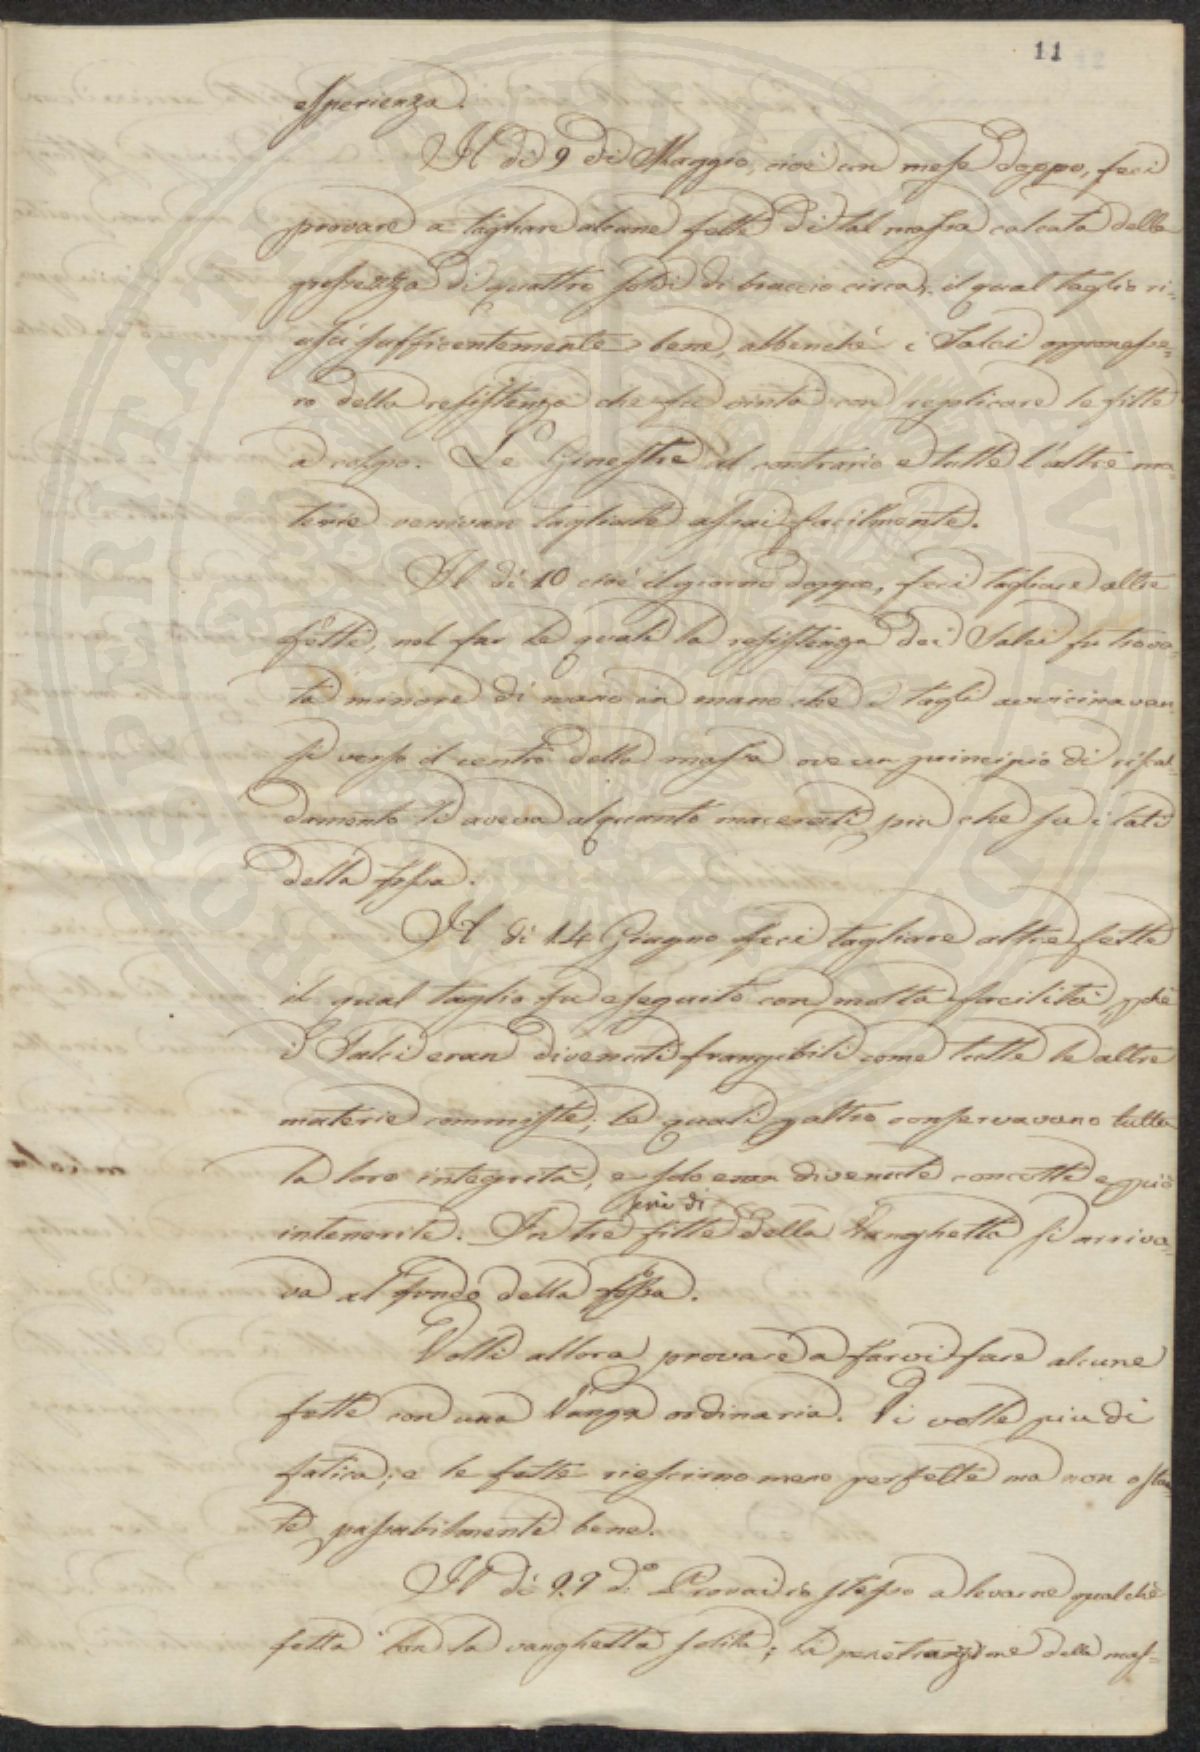 11
esperienza.
Il dì 9 di Maggio, cioè un mese doppo, feci
provare a tagliare alcune fette di tal massa calcata della
grossezza di quattro soldi di braccio circa, il qual taglio ri-
uscì sufficentemente bene, abbenchè i Salci opponesse-
ro della resistenza che fu vinta con replicare le fitte
a colpo. Le Ginestre al contrario e tutte l'altre ma-
terie venivan tagliate assai facilmente.
Il dì 10 cioè il giorno doppo, feci tagliare altre
fette, nel far le quali la resistenza dei Salci fu trova-
ta minore di mano in mano che i tagli avvicinavan
si verso il centro della massa ove un principio di riscal-
damento li aveva alquanto macerati più che su i lati
della fossa.
Il dì 14 Giugno feci tagliare altre fette
il qual taglio fu eseguito con molta facilità, pchè
i Salci eran divenuti frangibili come tutte le altre
materie commiste; le quali p altro conservavano tutta
la loro integrità, e solo eran divenute concotte e più
intenerite. In tre serie di fitte della Vanghetta si arriva-
va al fondo della fossa.
Volli allora provare a farvi fare alcune
fette con una Vanga ordinaria. Vi volle più di
fatica; e le fette riescirno meno perfette ma non ostan-
te passabilmente bene.
Il dì 29 d.° Provai io stesso a levarne qualche
fetta con la vanghetta solita; la penetrazione della mas-